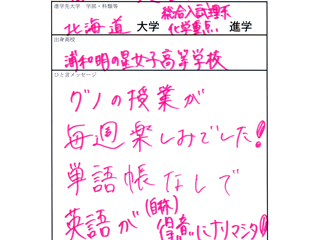 進学先大学　学部・科類等
北海道 大学 総合入試理系 化学重点 進学
出身高校
浦和明の星女子高等学校
ひと言メッセージ
グノの授業が
毎週楽しみでした!
単語帳なしで
英語が(自称)得意にナリマシタ!